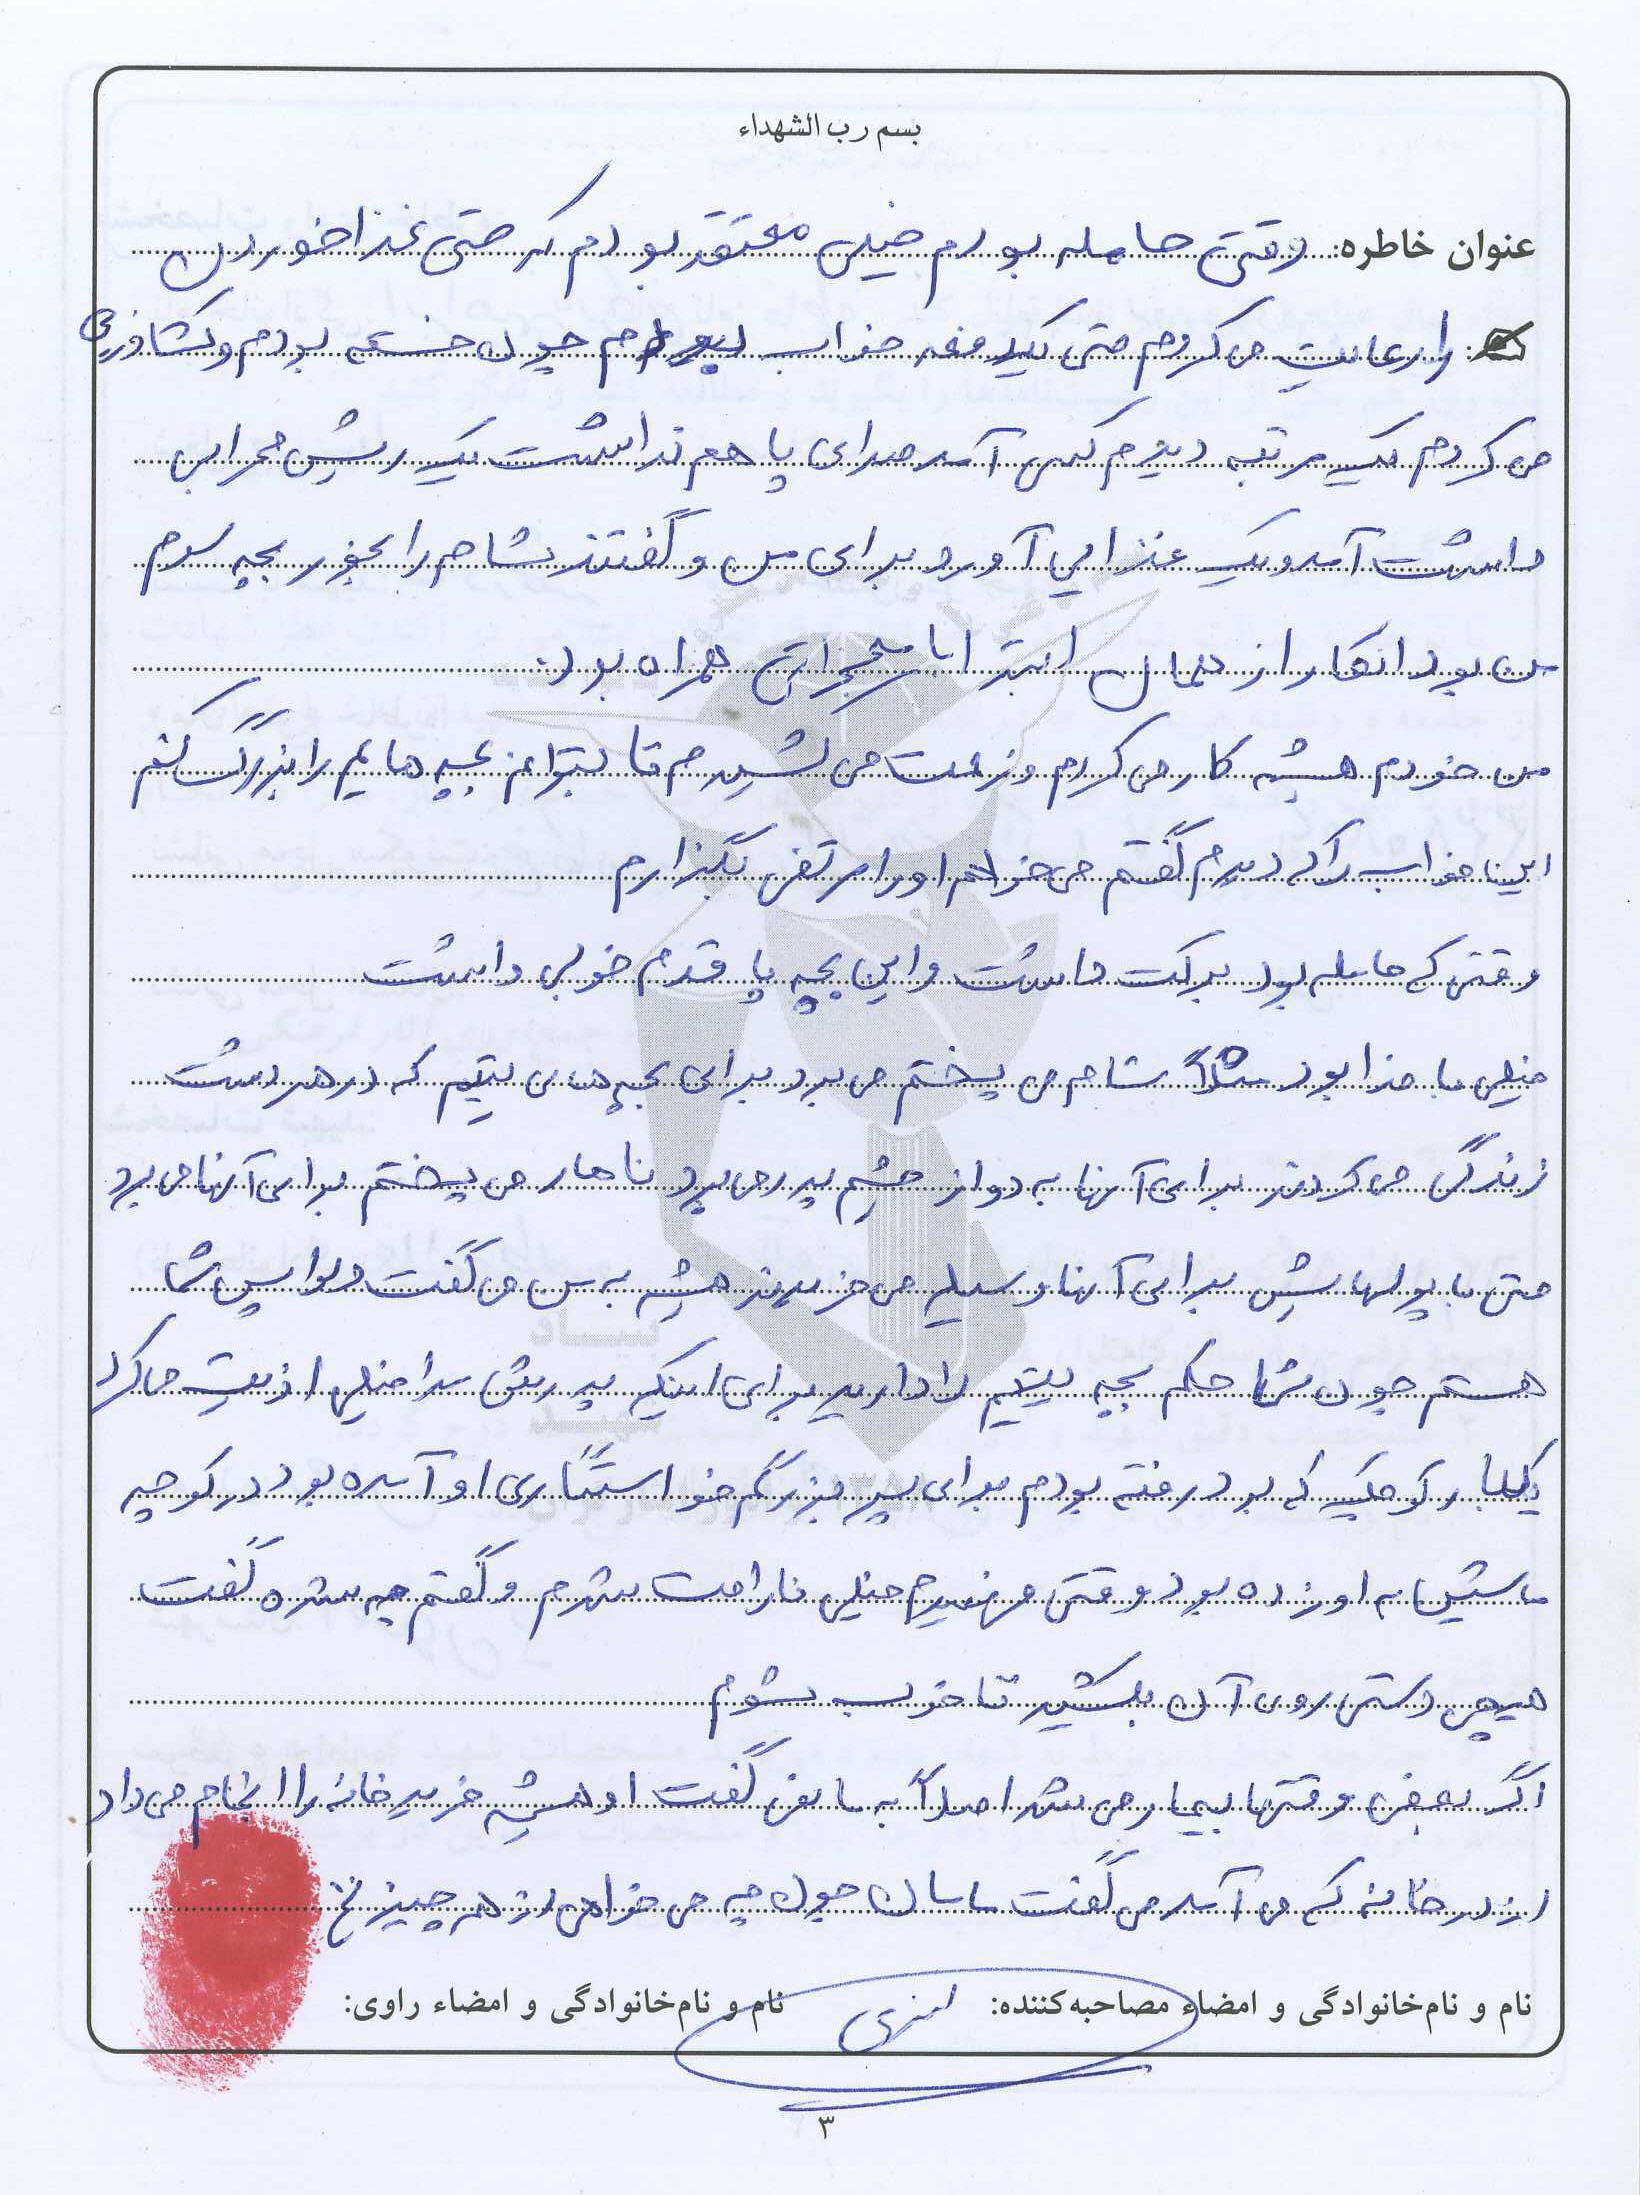 بسم رب الشهداء
عنوان خاطره: وقتی حامله بودم خیلی معتقد بودم که حتی غذا خوردن
را رعایت می کردم حتی یکدفعه خواب بودم چون خسته بودم و کشاورزی
می کردم یک مرتبه دیدم کسی آمد صدای پا هم نداشت یک ریش محرابی
داشت آمد و یک غذایی آورد برای من و گفتند شام را بخور بچه سوم
من بود انگار از همان ابتدا با معجزاتی همراه بود.
من خودم همیشه کار می کردم و زحمت می کشیدم تا بتوانم بچه هایم را بزرگ کنم
این خواب را که دیدم گفتم می خواهم او را مرتضی بگذارم
وقتی که حامله بود برکت داشت و این بچه پا قدم خوبی داشت
خیلی با خدا بود شام می پختم می برد برای بچه های یتیم که در هر دشت
زندگی می کردند برای آنها به دو از چشم پدر می برد ناهار می پختم برای آنها می برد
حتی با پولهایش برای آنها وسیله می خریدند همیشه به من می گفت دلواپس شما
هستم چون شما حکم بچه یتیم را دارید برای اینکه پدرش مرا خیلی اذیت می کرد
یکبار کوچک که بود رفته بودم برای پسر بزرگم خواستگاری او آمده بود در کوچه
ماشین به او زده بود وقتی فهمیدم خیلی ناراحت شدم و گفتم چه شده گفت
هیچی دستی روی آن بکشید تا خوب بشوم
اگر بعضی وقتها بیمار می شد اصلاً به ما نمی گفت او همیشه خرید خانه را انجام می داد
از در خانه که می آمد می گفت مامان جون چه می خواهی از هر چیز
نام و نام‌خانوادگی و امضاء مصاحبه‌کننده: نام و نام‌خانوادگی و امضاء راوی:
۳